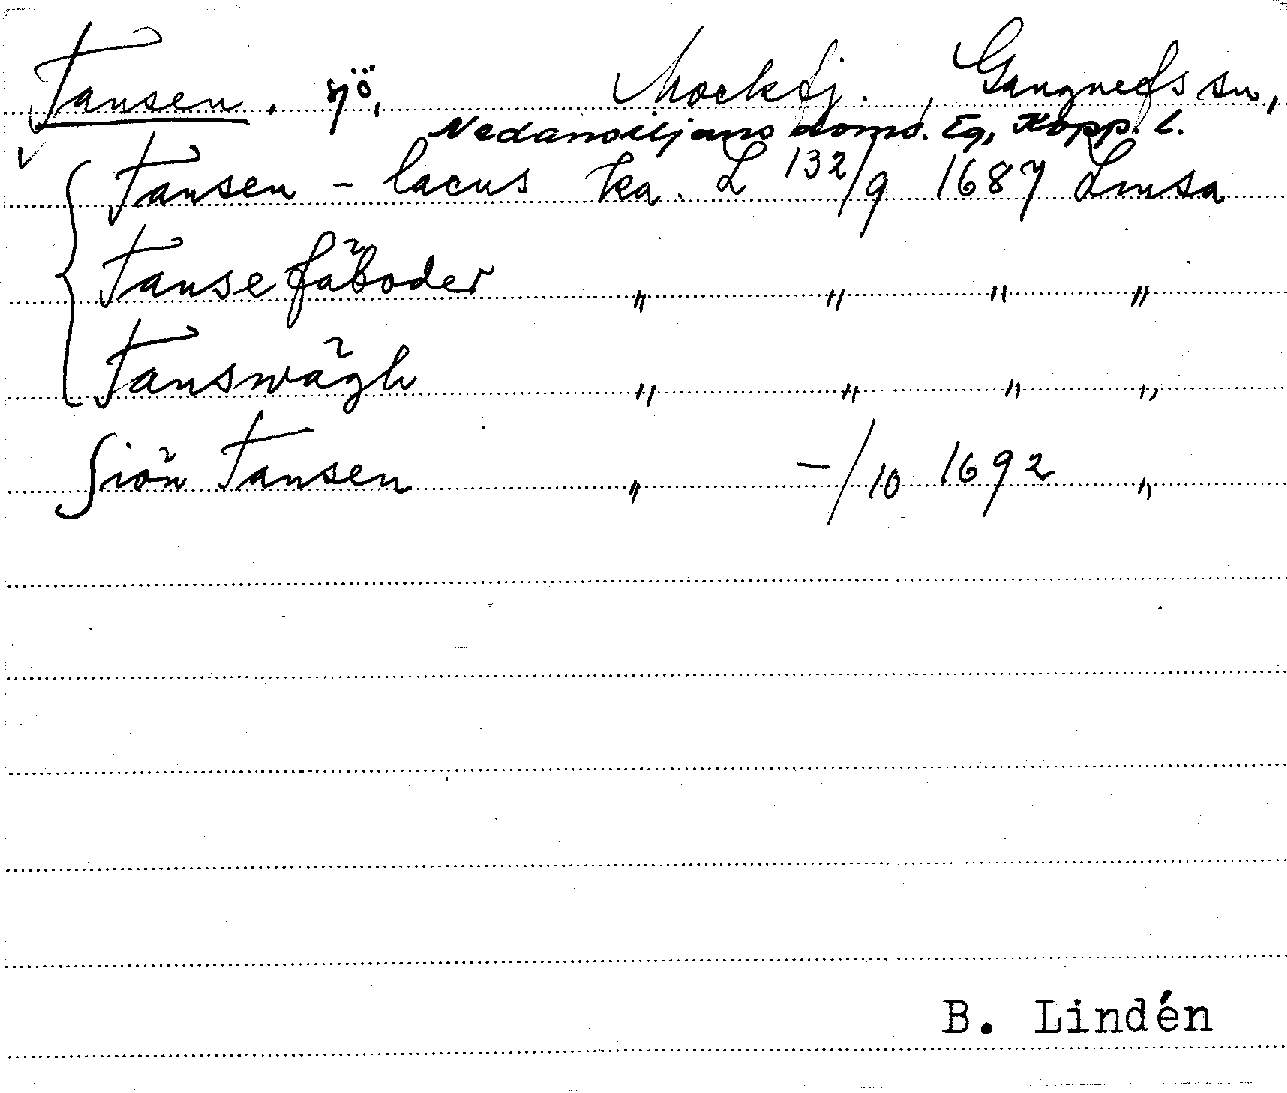 Tansen. sjö, Mockfj., Gangnefs sn,
Nedansiljans doms. Eg, Kopp. l.
Tansen - lacus ka. L 132/9 1687 Lmsa
Tanse fäboder " " " "
Tanswägh " " " "
Siön Tansen " -/10 1692 "
B. Lindén